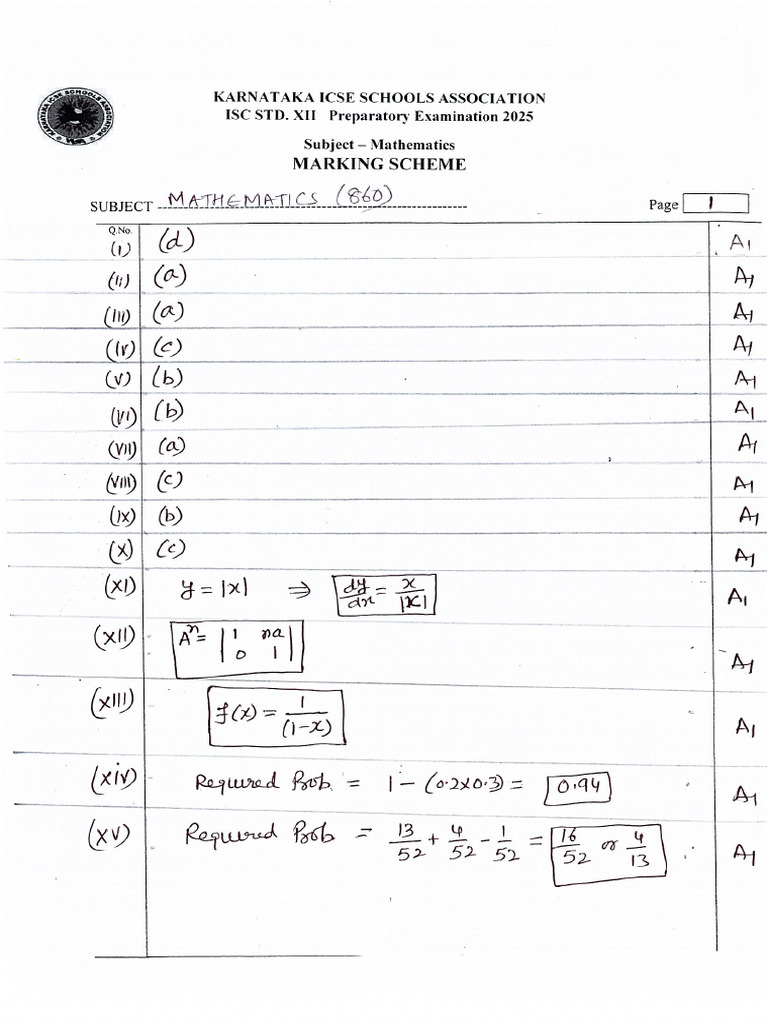 KARNATAKA ICSE SCHOOLS ASSOCIATION
KARNATAKA ICSE SCHOOLS ASSOCIATION
ISC STD. XII Preparatory Examination 2025
Subject – Mathematics
MARKING SCHEME
SUBJECT MATHEMATICS (860) Page 1
Q.No.
(i) (d) A1
(ii) (a) A1
(iii) (a) A1
(iv) (c) A1
(v) (b) A1
(vi) (b) A1
(vii) (a) A1
(viii) (c) A1
(ix) (b) A1
(x) (c) A1
(xi) y = |x| ⇒ dy/dx = x/|x| A1
(xii) Aⁿ = |1 na| A1
|0 1|
(xiii) f(x) = 1/(1-x) A1
(xiv) Required Prob. = 1 - (0.2×0.3) = 0.94 A1
(xv) Required Prob = 13/52 + 4/52 - 1/52 = 16/52 or 4/13 A1